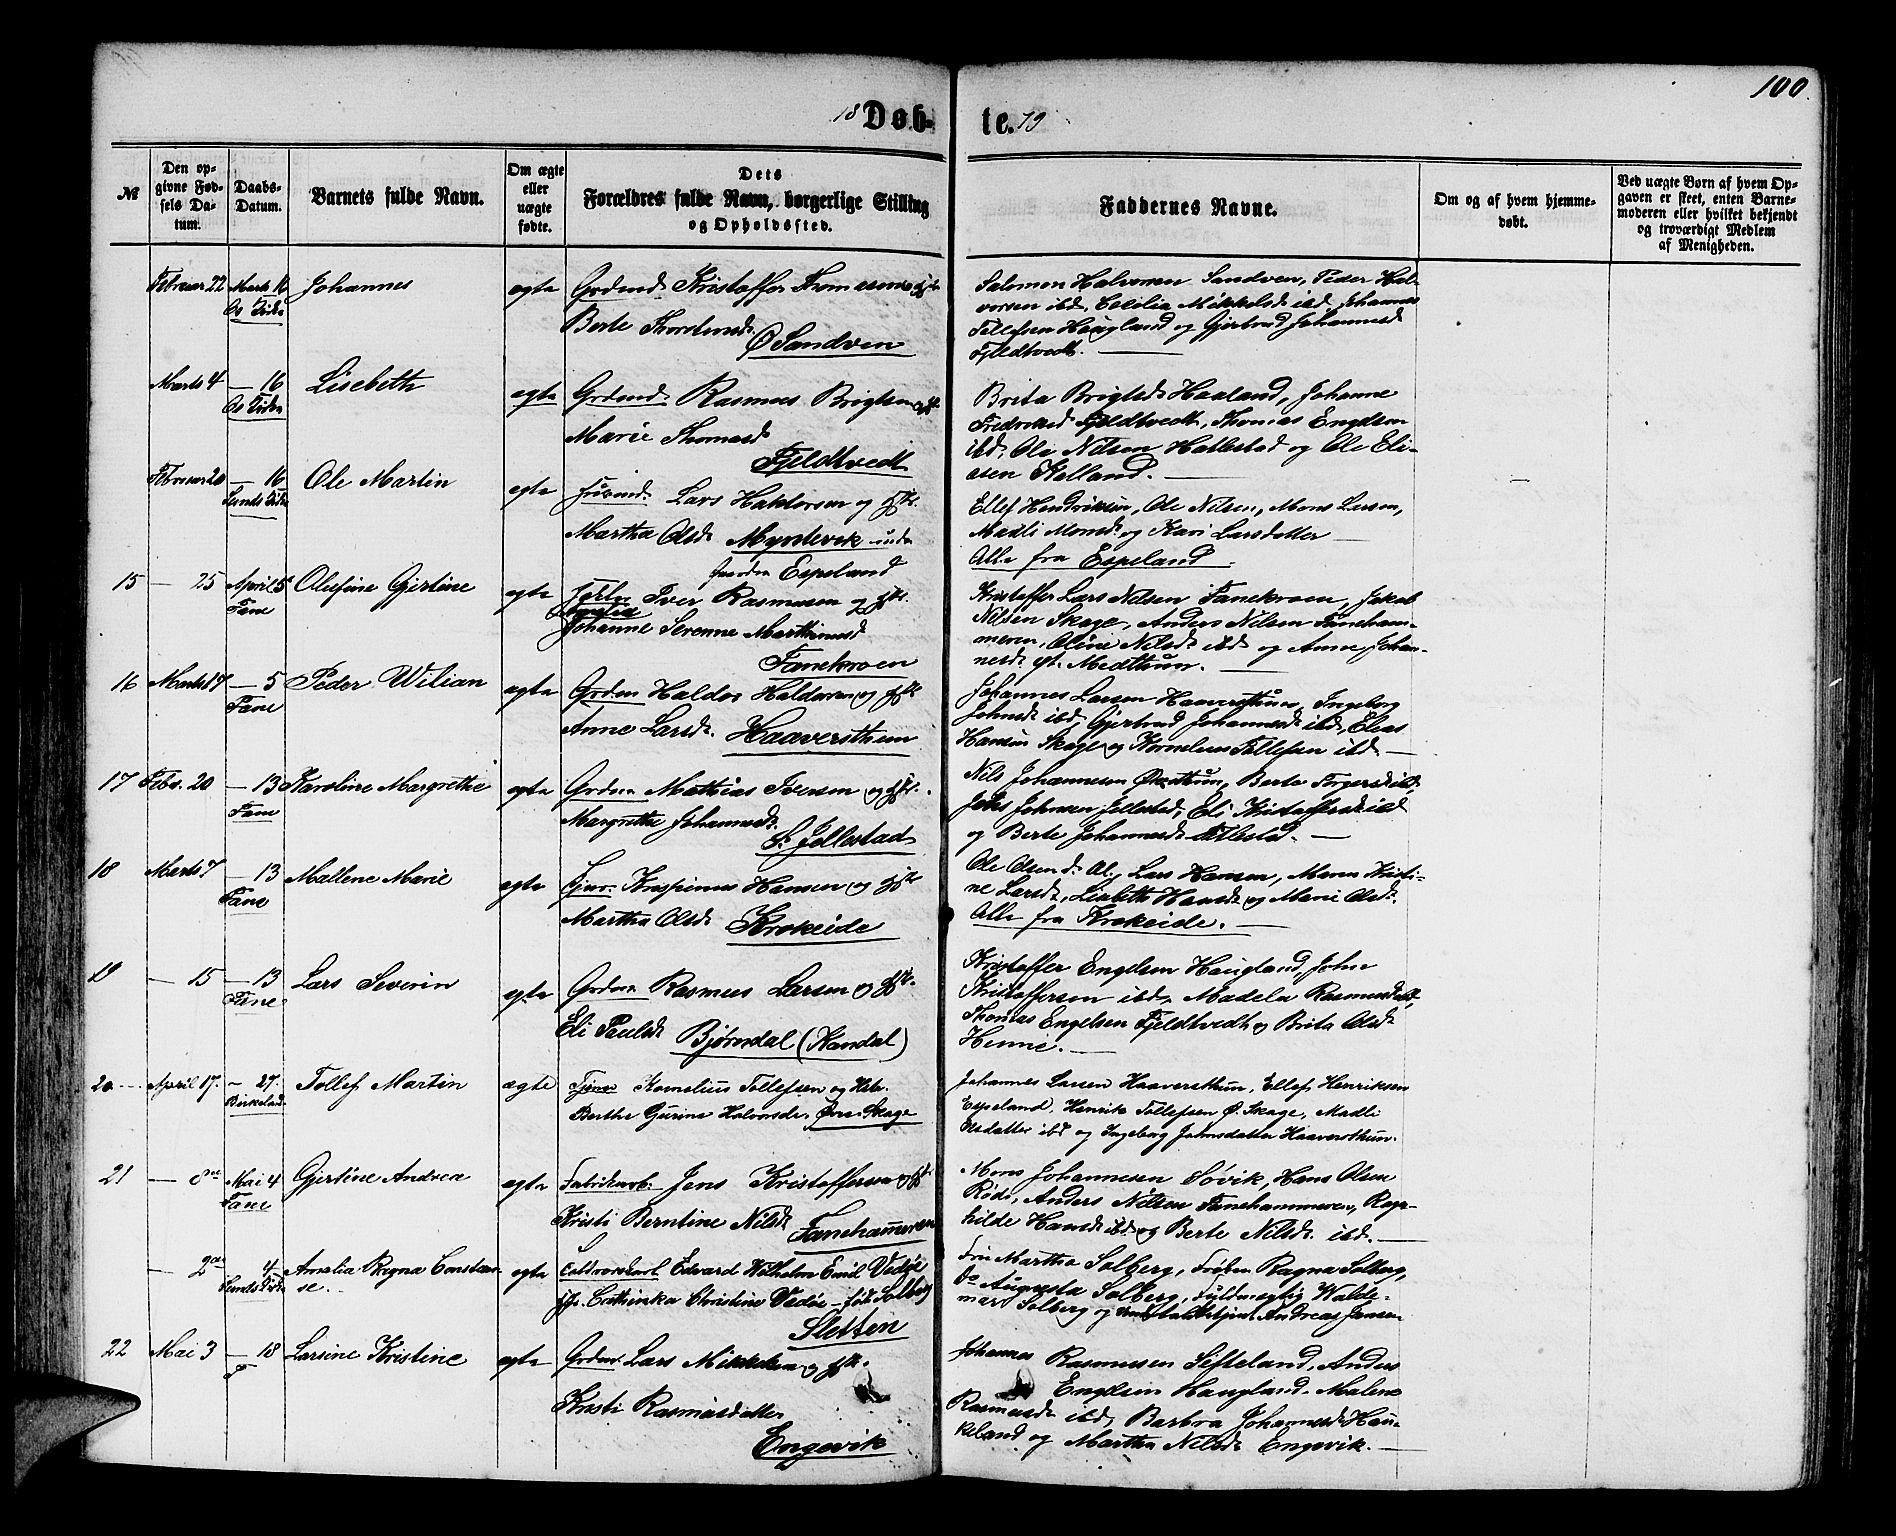 100.
18 Døb- te. 79
№
Den opgivne Fødsels Datum.
Daabs-Datum.
Barnets fulde Navn.
Om ægte eller uægte fødte.
Dets Forældres fulde Navn, borgerlige Stilling og Opholdssted.
Faddernes Navne.
Om og af hvem hjemmedøbt.
Ved uægte Børn af hvem Opgaven er skeet, enten Barnemoderen eller hvilket bekjendt og troværdigt Medlem af Menigheden.
Februar 22 Marts 16 Johannes ægte Grdmd. Kristoffer Thomassen og
Berte Thorstensd.
Ø Sandven
Salomon Halvorsen Sandven, Peder Hal-
vorsen ibd, Cecilia Mikkelsd ibd Johannes
Tollefsen Haugland og Gjertrud Johannesd
Fjeldtvedt.
Marts 4 — 16 Lisebeth ægte Grdmd. Rasmus Brigtsen
Os Kirke
Marie Thomasd
Fjeldtvedt
Brita Brigtsd Haaland, Johanne
Fredriksd Fjeldtvedt, Thomas Engelsen
ibd, Ole Nilsen Hallestad og Ole Eli-
asen Kalland.
Februar 20 — 16 Ole Martin ægte Lars Haktorsen og Hstr.
Sunds Kirke
Martha Olsd. Myrdevik under
Gaarden Espeland
Ellef Hendriksen, Ole Nilsen, Mons Larsen,
Madli Monsd. og Kari Larsdatter
Alle fra Espeland.
15 — 25 April 5 Olefine Gjertine ægte Iver Rasmusen og Hstr.
Fane
Johanne Serenne Marthinusd
Fanekroen
Kristoffer Lars Nilsen Fanekroen, Jakob
Nilsen Skage, Anders Nilsen Faneham-
meren, Oline Nilsd. ibd og Anne Johan-
nesd. Midthun.
16 Marts 17 — 5 Peder Wilian ægte Grdm Haldor Haldorsen og Hstr
Fane
Anne Larsd. Haaversthun
Johannes Larsen Haaversthun, Ingeborg
Johnsd ibd, Gjertrud Johannesd ibd, Elias
Hansen Skage og Kornelius Tollefsen ibd
17 Febr. 20 — 13 Karoline Margrethe ægte Grdm Mathias Iversen og Hstr.
Fane
Margrethe Johannesd.
Jellestad
Nils Johannesen Øvsttun, Berte
Johnsen Jellestad, Eli Kristoffersd ibd
og Berte Johannesd.
18 Marts 7 — 13 Mallene Marie ægte Krispinus Hansen og Hstr
Fane
Martha Olsd. Krokeide
Ole Olsen Lars Hansen, Maren Kristi-
ne Larsd, Lisbeth Hansd og Marie Olsd.
Alle fra Krokeide.
19 — 15 — 13 Lars Severin ægte Grdm Rasmus Larsen og Hstr.
Fane
Eli Paulsd Bjørndal (Handal)
Kristoffer Engelsen Haugland, John
Kristoffersen ibd, Madela Rasmusd ibd,
Thomas Engelsen Fjeldtvedt og Brita Olsd.
Hinnie.
20 April 17. – 27. Tollef Martin ægte Kornelius Tollefsen og Hstr.
Birkeland
Berthe Gurine Halvorsdr. Øvre Skage
Johannes Larsen Haaversthun, Ellef Henriksen
Espeland, Henrik Tollefsen Ø. Skage, Madli
Olsdatter ibd og Ingeborg Johnsdatter Haaversthun.
21 — 8de Mai 4 Gjertine Andrea ægte Fabrikarb. Jens Kristoffersen og
Fane
Kristi Berntine Nilsd Fanehammeren
Mons Johannesen Søvik, Hans Olsen
Anders Nilsen Fanehammeren, Ragn-
hilde Hansd ibd, og Berte Nilsd. ibd.
— 2den 4 Amalia Ragna Constan- ægte Edvard Wilhelm Emil Vedøe
Sunds Kirke se.
Cathinka Christine Vedøe – født Solberg
Sletten
Fru Martha Solberg, Frøken Ragna Solberg,
do Augusta Solberg, Fuldmægtig Walde-
mar Solberg og Andreas Jansen
22 Mai 3 — 18 Larsine Kristine ægte Grdm. Lars Mikkelsen og Hstr.
F
Kristi Rasmusdatter
Engevik
Johannes Rasmusen Sefteland, Anders
Engelsen Haugland, Malene
Rasmusd ibd, Barbra Johannesd Hau-
keland og Martha Nilsd. Engevik.